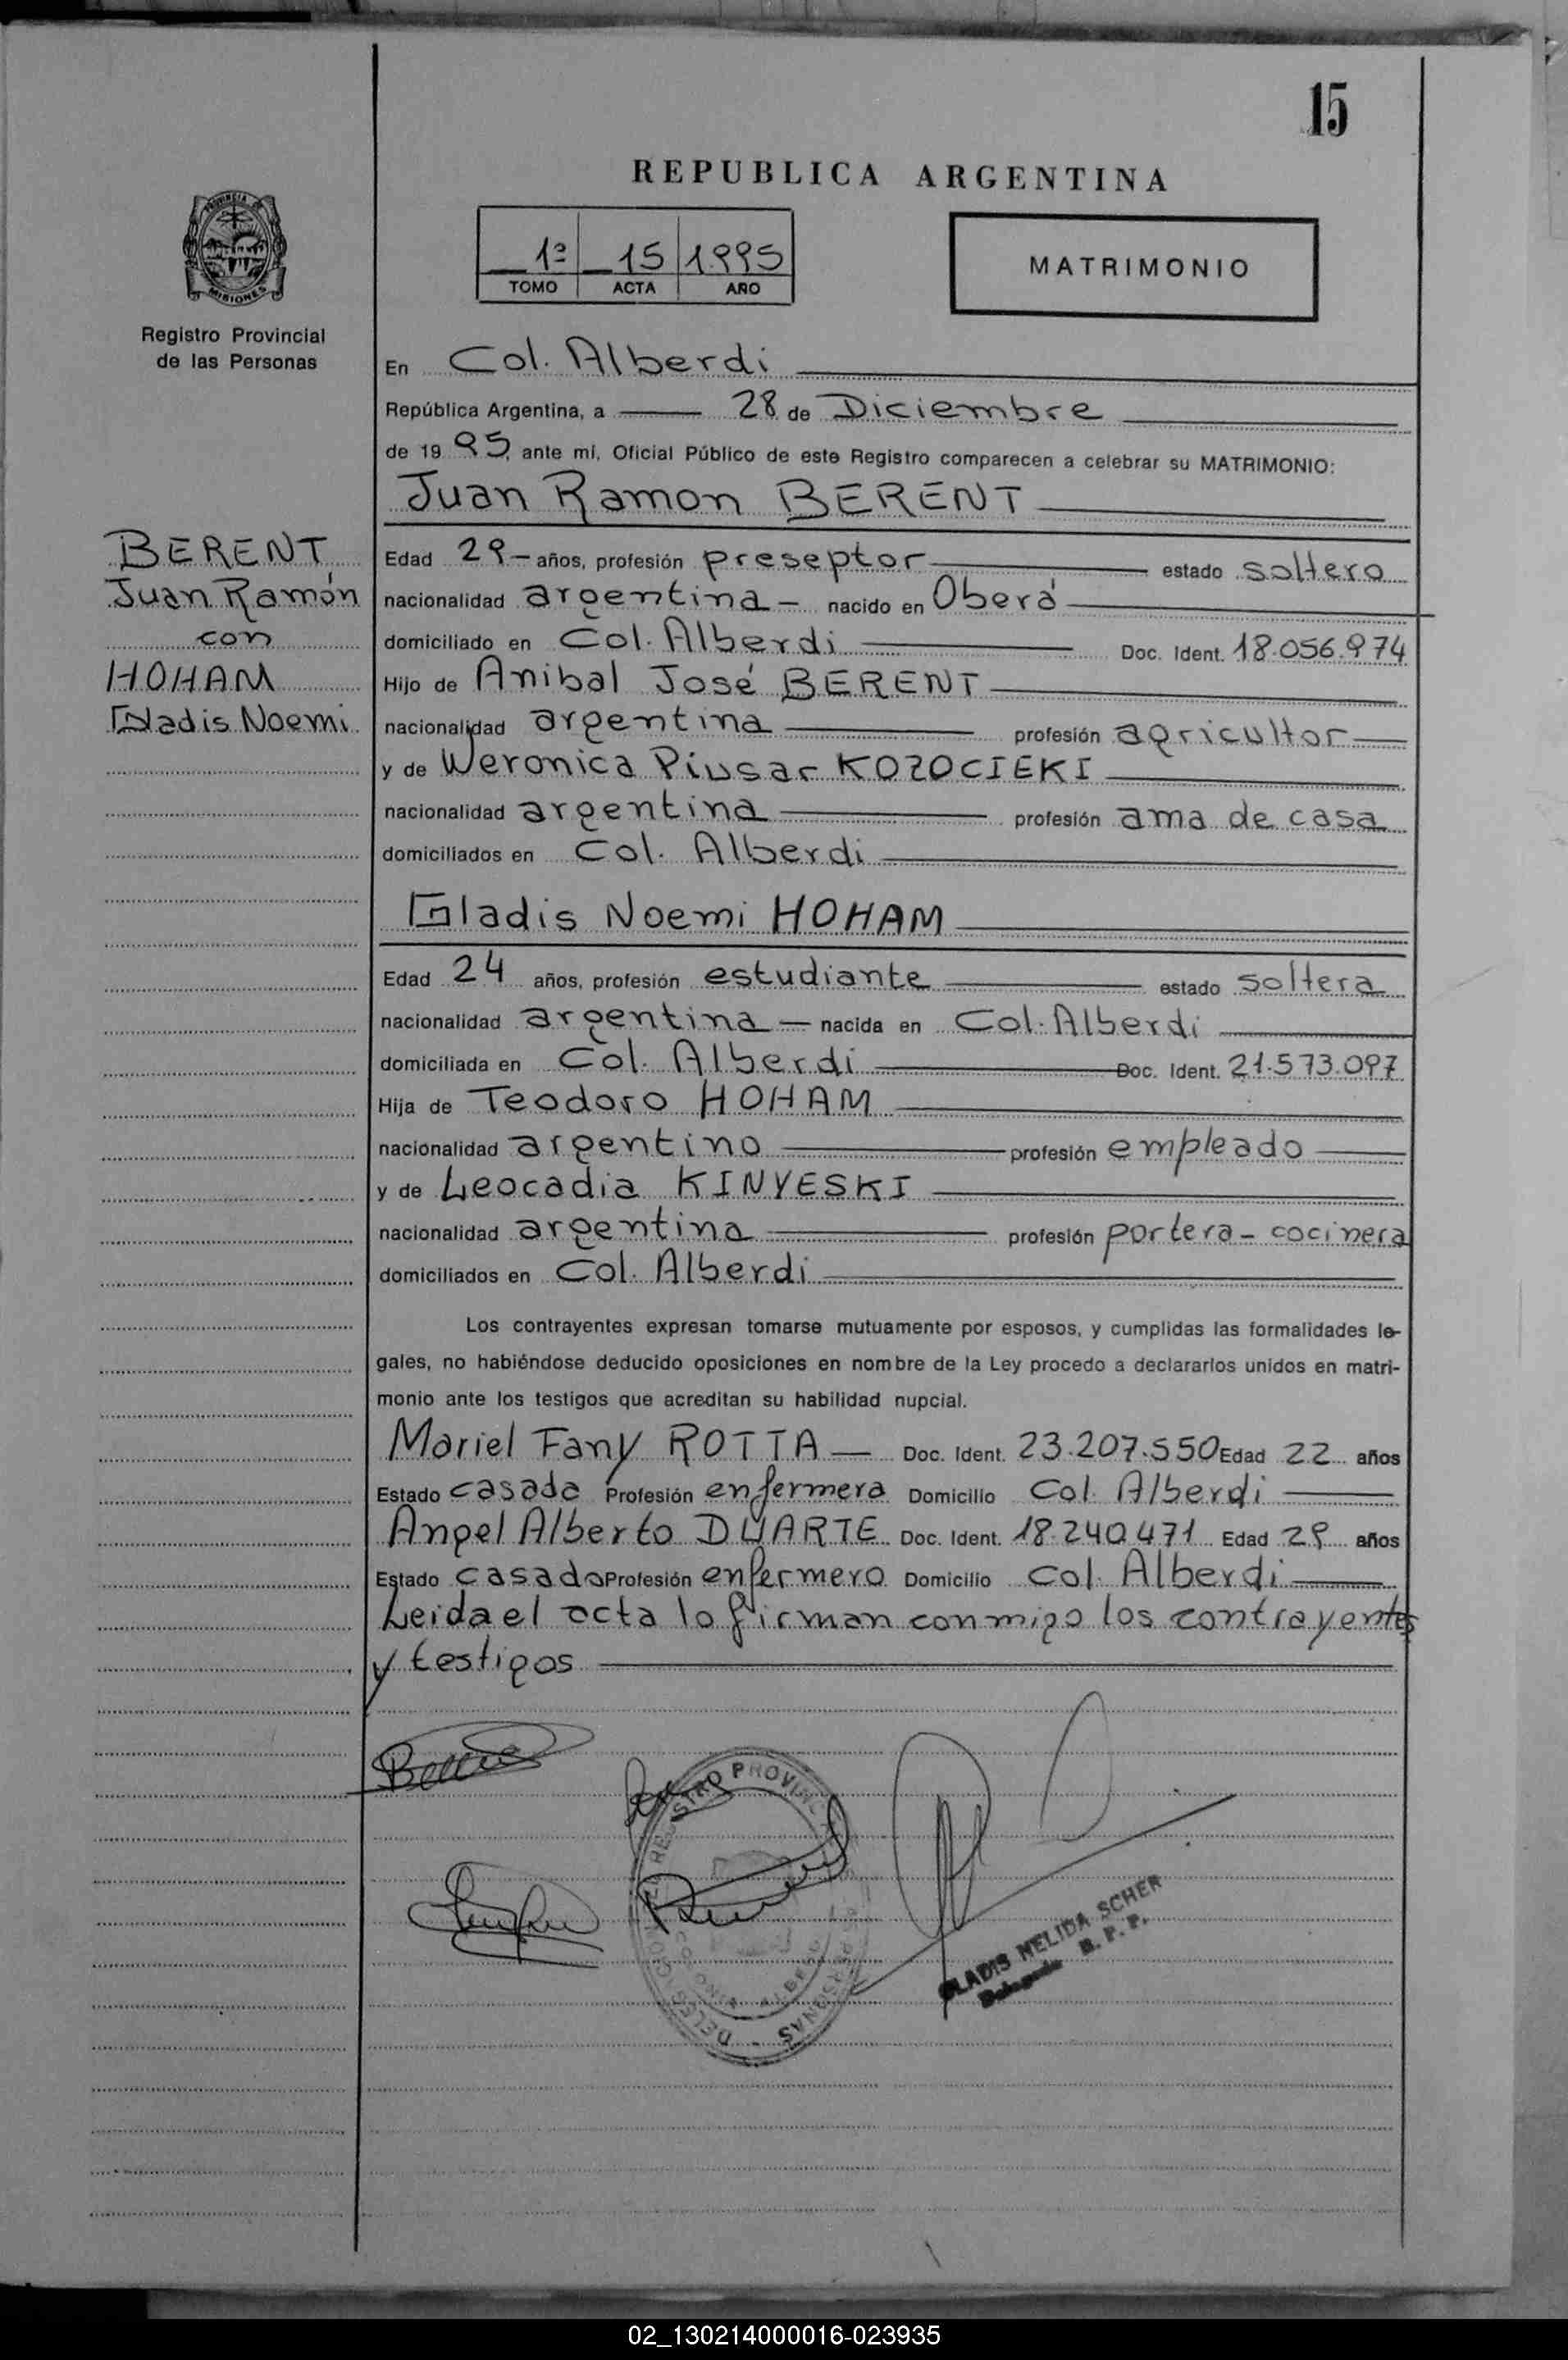 15
REPUBLICA ARGENTINA
PROVINCIA DE
MISIONES
Registro Provincial
de las Personas
1º 15 1995
TOMO ACTA AÑO
MATRIMONIO
En Col. Alberdi
República Argentina, a 28 de Diciembre
de 1995, ante mí, Oficial Público de este Registro comparecen a celebrar su MATRIMONIO:
Juan Ramon BERENT
BERENT
Juan Ramón
con
HOHAM
Gladis Noemi
Edad 29 años, profesión preseptor estado soltero
nacionalidad argentina nacido en Oberá
domiciliado en Col. Alberdi Doc. Ident. 18.056.974
Hijo de Anibal José BERENT
nacionalidad argentina profesión agricultor
y de Weronica Piusar KOZOCIEKI
nacionalidad argentina profesión ama de casa
domiciliados en Col. Alberdi
Gladis Noemi HOHAM
Edad 24 años, profesión estudiante estado soltera
nacionalidad argentina nacida en Col. Alberdi
domiciliada en Col. Alberdi Doc. Ident. 21.573.097
Hija de Teodoro HOHAM
nacionalidad argentino profesión empleado
y de Leocadia KINVESKI
nacionalidad argentina profesión portera - cocinera
domiciliados en Col. Alberdi
Los contrayentes expresan tomarse mutuamente por esposos, y cumplidas las formalidades le-
gales, no habiéndose deducido oposiciones en nombre de la Ley procedo a declararlos unidos en matri-
monio ante los testigos que acreditan su habilidad nupcial.
Mariel Fany ROTTA Doc. Ident. 23.207.550 Edad 22 años
Estado casada Profesión enfermera Domicilio Col. Alberdi
Angel Alberto DUARTE Doc. Ident. 18.240.471 Edad 29 años
Estado casado Profesión enfermero Domicilio Col. Alberdi
Leida el acta lo firman conmigo los contrayentes
y testigos
GLADIS NELIDA SCHER
Delegada R. P. P.
02_130214000016-023935